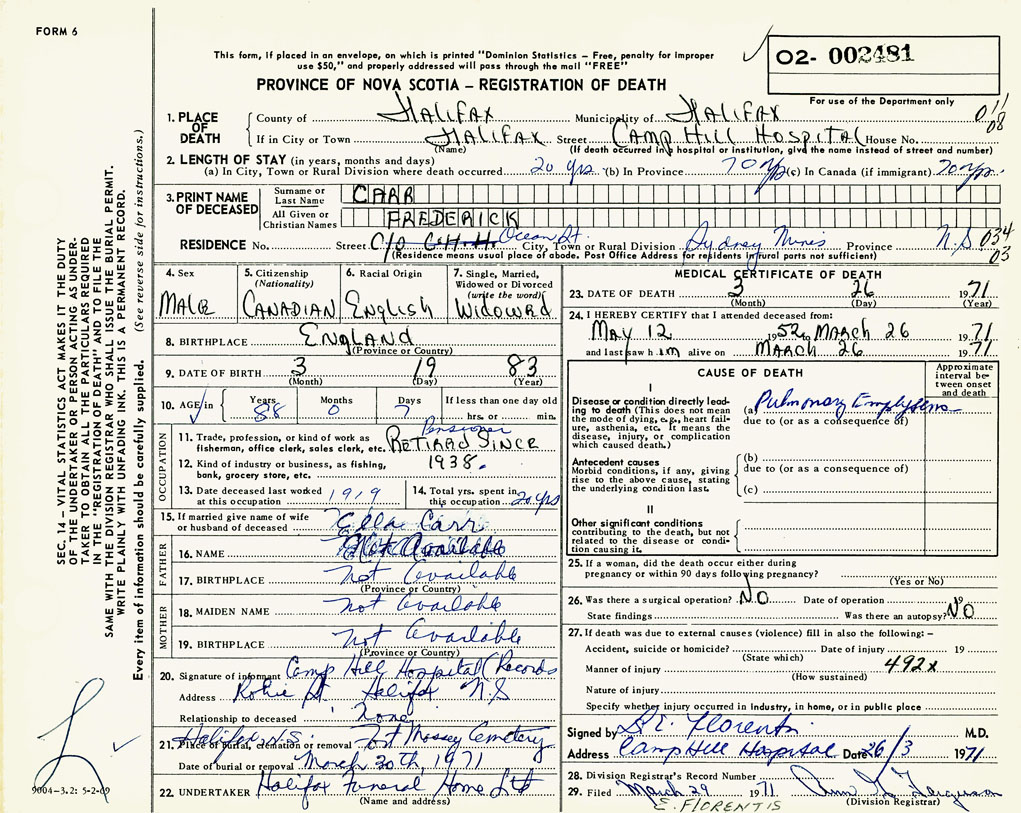 FORM 6
This form, if placed in an envelope, on which is printed "Dominion Statistics – Free, penalty for improper
use $50," and properly addressed will pass through the mail "FREE"
02- 002481
PROVINCE OF NOVA SCOTIA – REGISTRATION OF DEATH
For use of the Department only
1. PLACE OF DEATH
County of HALIFAX Municipality of HALIFAX
If in City or Town HALIFAX Street CAMP HILL HOSPITAL House No.
(Name) (If death occurred in hospital or institution, give the name instead of street and number)
2. LENGTH OF STAY (in years, months and days)
(a) In City, Town or Rural Division where death occurred 20 yrs (b) In Province 70 yrs (c) In Canada (if immigrant) 70 yrs.
3. PRINT NAME OF DECEASED
Surname or Last Name CARR
All Given or Christian Names FREDERICK
RESIDENCE No. Street C/O C.H.H. Ocean St. City, Town or Rural Division Sydney Mines Province N.S 034
(Residence means usual place of abode. Post Office Address for residents in rural parts not sufficient) 03
4. Sex MALE
5. Citizenship (Nationality) CANADIAN
6. Racial Origin ENGLISH
7. Single, Married, Widowed or Divorced (write the word) WIDOWED
8. BIRTHPLACE ENGLAND
(Province or Country)
9. DATE OF BIRTH 3 19 83
(Month) (Day) (Year)
10. AGE in Years 88 Months 0 Days 7 If less than one day old hrs. or min.
OCCUPATION
Pensioner
11. Trade, profession, or kind of work as fisherman, office clerk, sales clerk, etc. RETIRED SINCE
12. Kind of industry or business, as fishing, bank, grocery store, etc. 1938.
13. Date deceased last worked at this occupation 1919
14. Total yrs. spent in this occupation 20 yrs
15. If married give name of wife or husband of deceased Ella Carr
FATHER
16. NAME Not Available
17. BIRTHPLACE Not Available
(Province or Country)
MOTHER
18. MAIDEN NAME Not Available
19. BIRTHPLACE Not Available
(Province or Country)
20. Signature of informant Camp Hill Hospital (Records
Address Robie St Halifax N.S
Relationship to deceased None
21. Place of burial, cremation or removal Halifax N.S. Fort Massey Cemetery
Date of burial or removal March 30th, 1971
22. UNDERTAKER Halifax Funeral Home Ltd
(Name and address)
MEDICAL CERTIFICATE OF DEATH
23. DATE OF DEATH 3 26 1971
(Month) (Day) (Year)
24. I HEREBY CERTIFY that I attended deceased from:
MAY 12 1952 to MARCH 26 1971
and last saw him alive on MARCH 26 1971
CAUSE OF DEATH
Approximate interval between onset and death
I
Disease or condition directly leading to death (This does not mean the mode of dying, e.g., heart failure, asthenia, etc. It means the disease, injury, or complication which caused death.)
(a) Pulmonary Emphysema
due to (or as a consequence of)
Antecedent causes
Morbid conditions, if any, giving rise to the above cause, stating the underlying condition last.
(b)
due to (or as a consequence of)
(c)
II
Other significant conditions contributing to the death, but not related to the disease or condition causing it.
25. If a woman, did the death occur either during
pregnancy or within 90 days following pregnancy?
(Yes or No)
26. Was there a surgical operation? NO Date of operation 19
State findings Was there an autopsy? NO
27. If death was due to external causes (violence) fill in also the following: –
Accident, suicide or homicide? Date of injury 19
(State which)
Manner of injury 492x
(How sustained)
Nature of injury
Specify whether injury occurred in industry, in home, or in public place
Signed by Florentis M.D.
Address Camp Hill Hospital Date 26/3 1971
28. Division Registrar's Record Number
29. Filed March 29 1971 Ferguson
(Division Registrar)
E. FLORENTIS
SEC. 14 – VITAL STATISTICS ACT MAKES IT THE DUTY
OF THE UNDERTAKER OR PERSON ACTING AS UNDER-
TAKER TO OBTAIN ALL THE PARTICULARS REQUIRED
IN THE "REGISTRATION OF DEATH" AND TO FILE THE
SAME WITH THE DIVISION REGISTRAR WHO SHALL ISSUE THE BURIAL PERMIT.
WRITE PLAINLY WITH UNFADING INK. THIS IS A PERMANENT RECORD.
Every item of information should be carefully supplied. (See reverse side for instructions.)
9004-3.2: 5-2-69